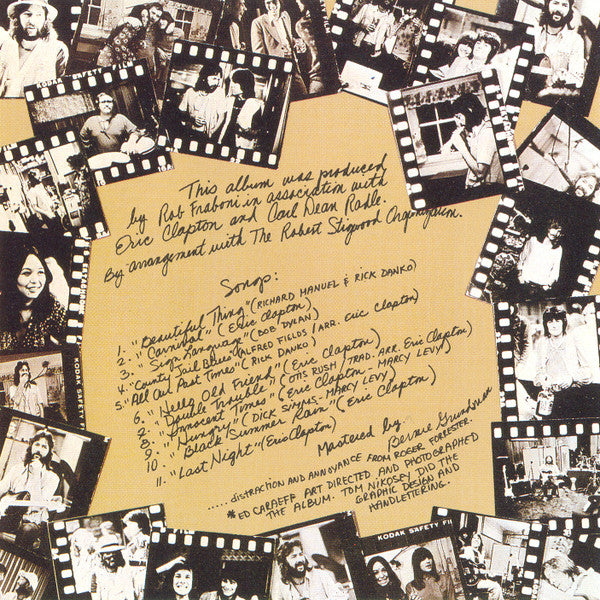 KODAK SAFETY FILM
This album was produced
by Rob Fraboni in association with
Eric Clapton and Carl Dean Radle.
By arrangement with The Robert Stigwood Organization.
Songs:
1. "Beautiful Thing" (RICHARD MANUEL & RICK DANKO)
2. "Carnival" (Eric Clapton)
3. "Sign Language" (BOB DYLAN)
4. "County Jail Blues" (ALFRED FIELDS / ARR. Eric Clapton)
5. "All Our Past Times" (RICK DANKO)
6. "Hello Old Friend" (Eric Clapton)
7. "Double Trouble" (OTIS RUSH / TRAD. ARR. Eric Clapton)
8. "Innocent Times" (Eric Clapton - MARCY LEVY)
9. "Hungry" (DICK SIMMS - MARCY LEVY)
10. "Black Summer Rain" (Eric Clapton)
11. "Last Night" (Eric Clapton)
Mastered by:
Bernie Grundman
..... DISTRACTION AND ANNOYANCE FROM ROGER FORRESTER.
* ED CARAEFF ART DIRECTED AND PHOTOGRAPHED
THE ALBUM. TOM NIKOSEY DID THE
GRAPHIC DESIGN AND
HANDLETTERING.
KODAK SAFETY
KODAK SAFETY FI